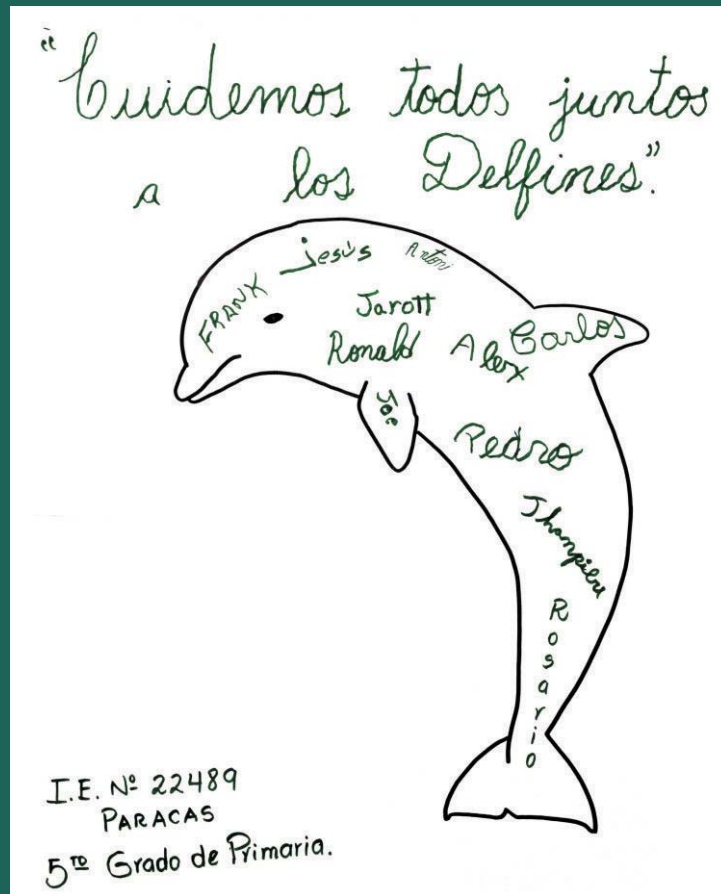 "Cuidemos todos juntos
a los Delfines".
Jesús
Antoni
FRANK
Jarott
Ronald
Alex
Carlos
Joe
Pedro
Jhampier
Rosario
I.E. Nº 22489
PARACAS
5to Grado de Primaria.